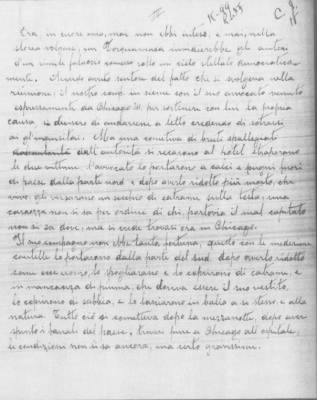 III
K-89
C. 9
Era in cuore mio, mai non ebbi inteso, e mai, nella
storia volgare, un Torquemada immaginerebbe gli autori
d'un simile palazzo comune sotto un cielo stellato democraticamente.
Avendo avuto sentore del fatto che si svolgeva nella
riunione: il nostro comp. in sieme con il suo avvocato venuto
espressamente da Chicago Ill. per sostenere con lui la propria
causa si decisero di andarsene a letto credendo di sottrarsi
ai giganteschi. Ma una comitiva di bruti spalleggiati
dall'autorità si recarono al hotel strapparono
le due vittime. L'avvocato lo portarono a calci e pugni fuori
di paese dalla parte nord e dopo averlo ridotto più morto, che
vivo, gli versarono un secchio di catrame, sulla testa; una
carrozza non si sa per ordine di chi, portava il mal capitato
non si sa dove, ma si crede trovasi era in Chicago.
Il suo compagno non ebbe tanta fortuna, questo con le medesime
lo portarono dalla parte del sud, dopo averlo ridotto
come ecce uomo, lo spogliarono e lo copersero di catrame, e
in mancanza di piuma, che doveva essere il suo vestito,
lo copersero di sabbia, e lo lasciarono in balia a se stesso e alla
natura. Tutto ciò si commetteva dopo la mezzanotte, dopo aver
spento i fanali del paese, trovasi pure a Chicago all'ospitale,
le condizioni non si sa ancora, ma certo gravissime.